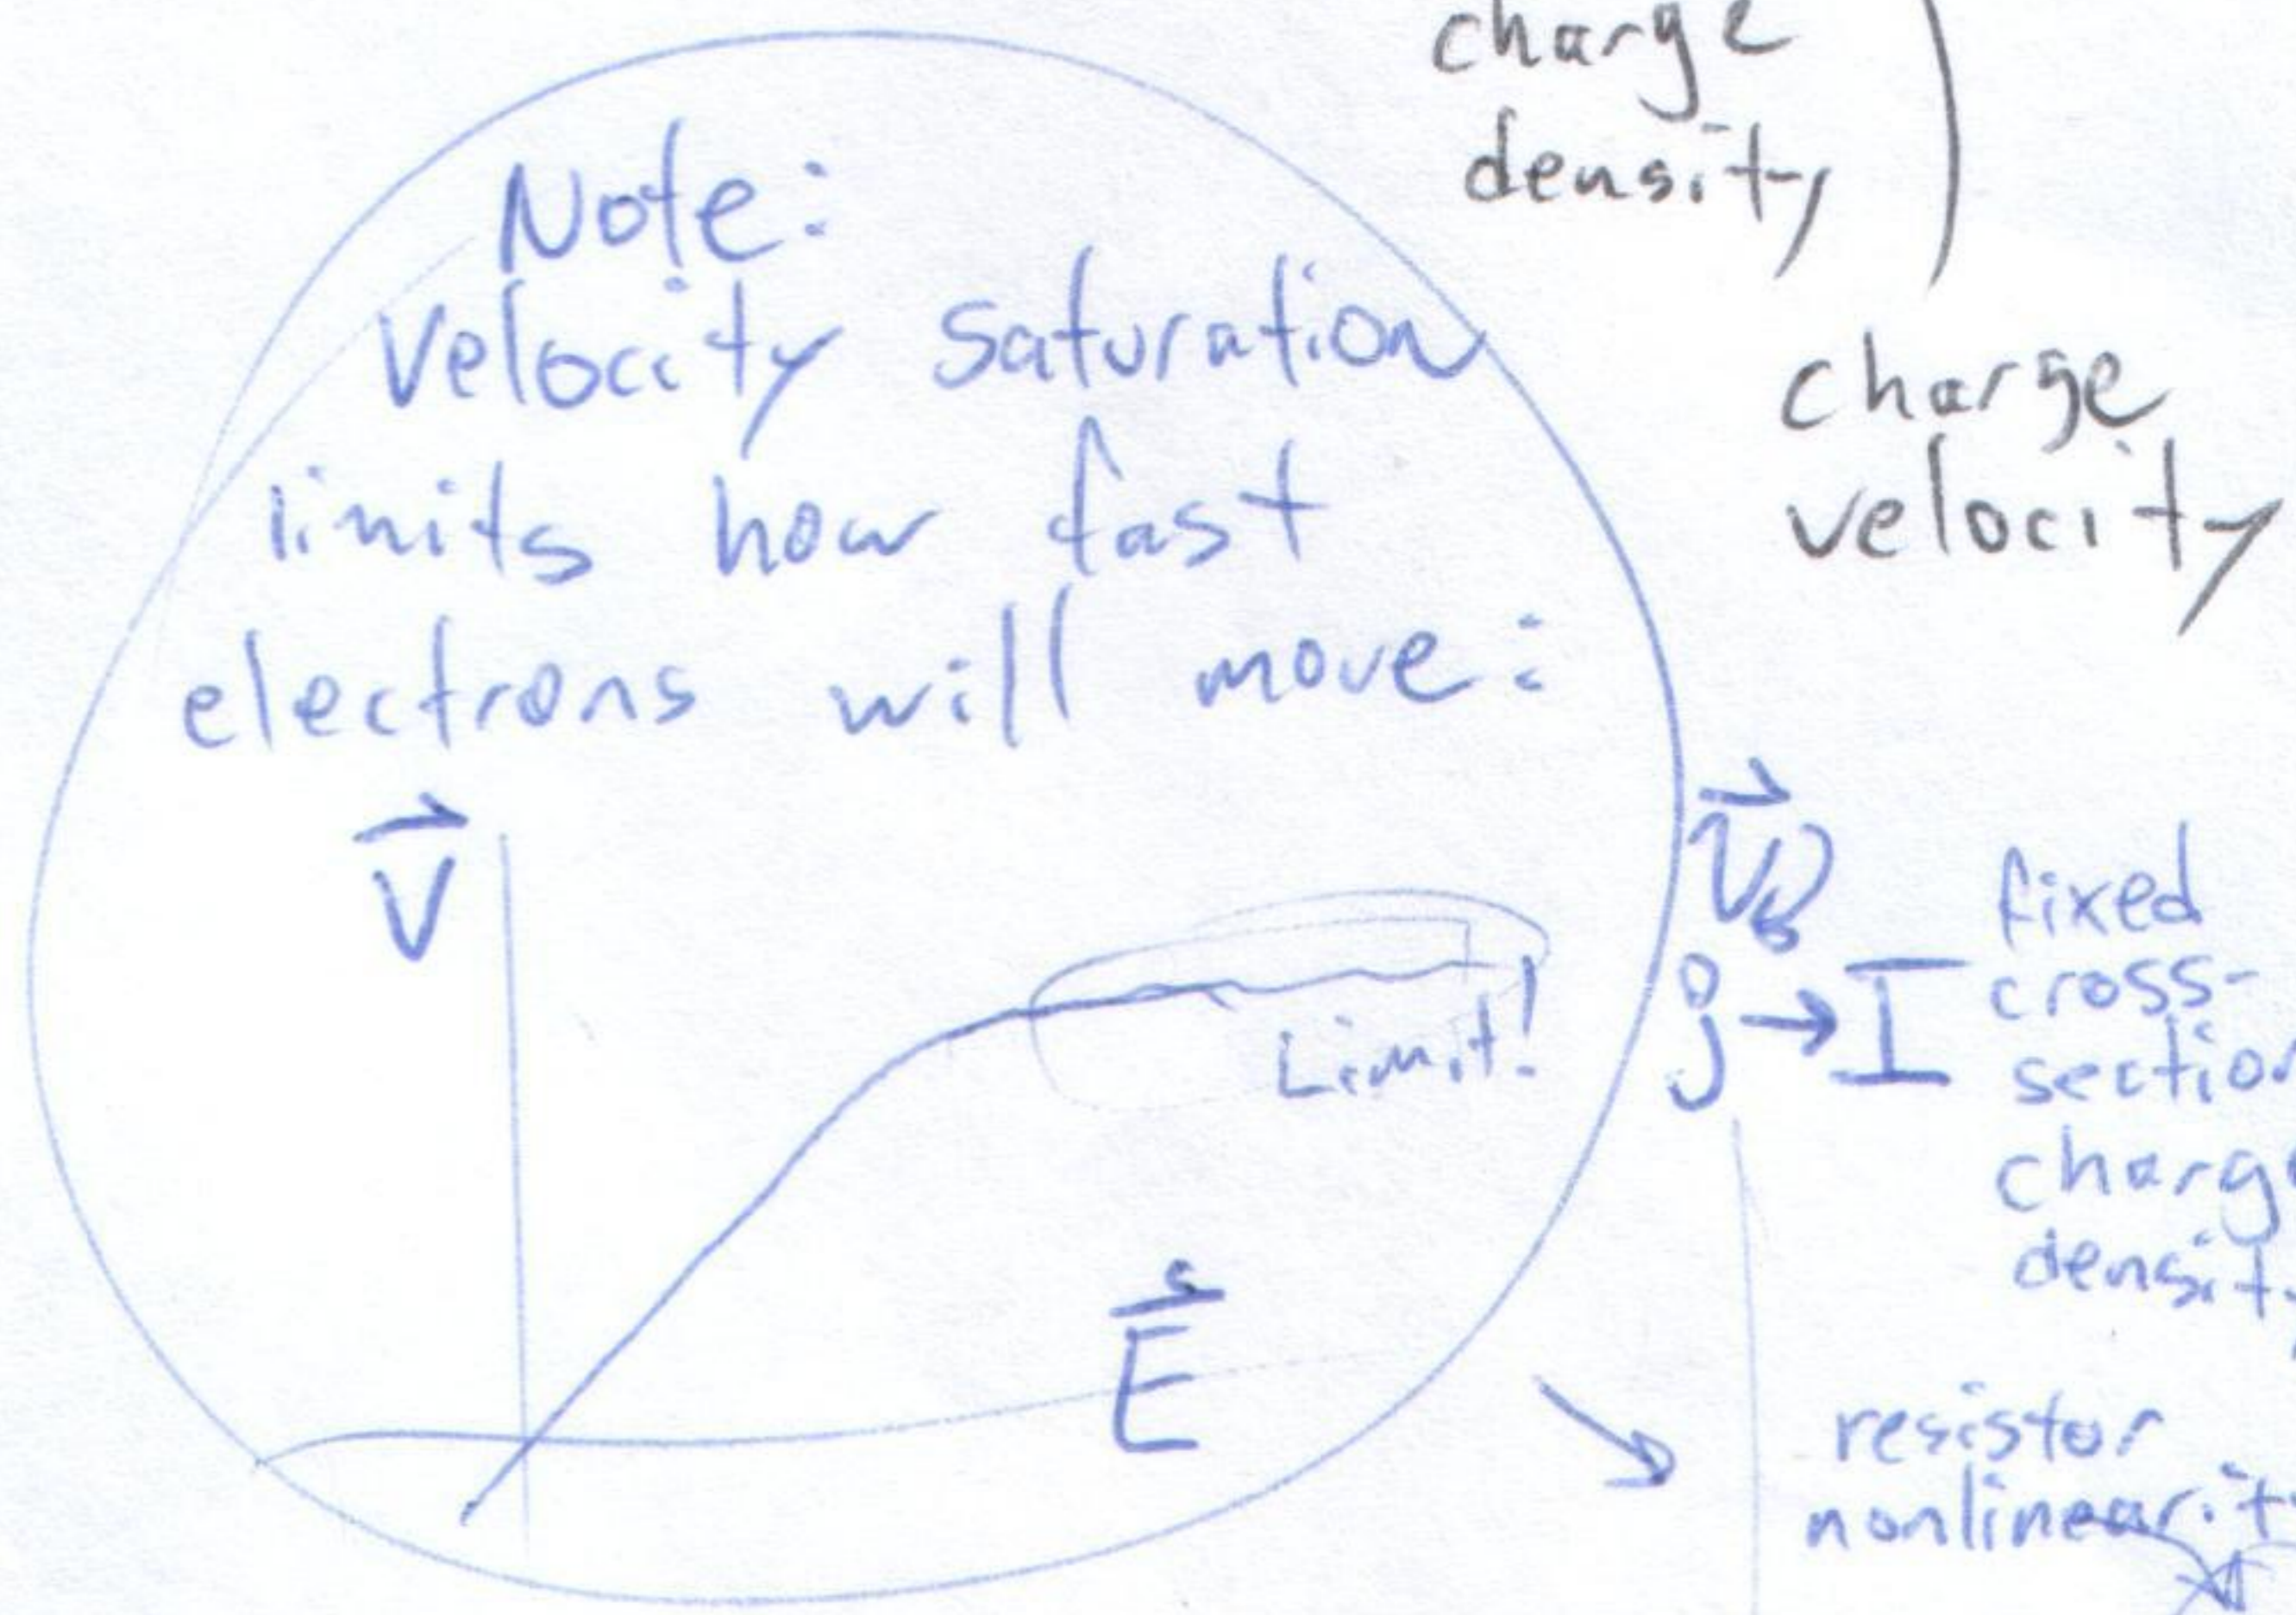 charge
density
Note:
Velocity Saturation
limits how fast
electrons will move:
charge
velocity
V
Limit!
E
j → I
fixed
cross-
section
charge
density
resistor
nonlinearity